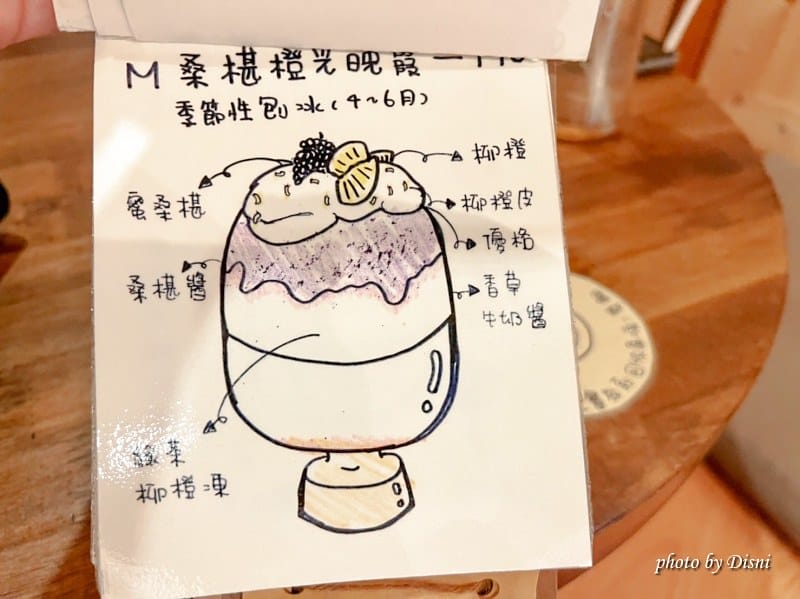 M 桑椹橙光晚霞
季節性刨冰(4~6月)
柳橙
蜜桑椹
柳橙皮
優格
桑椹醬
香草
牛奶醬
綠茶
柳橙凍
photo by Disni